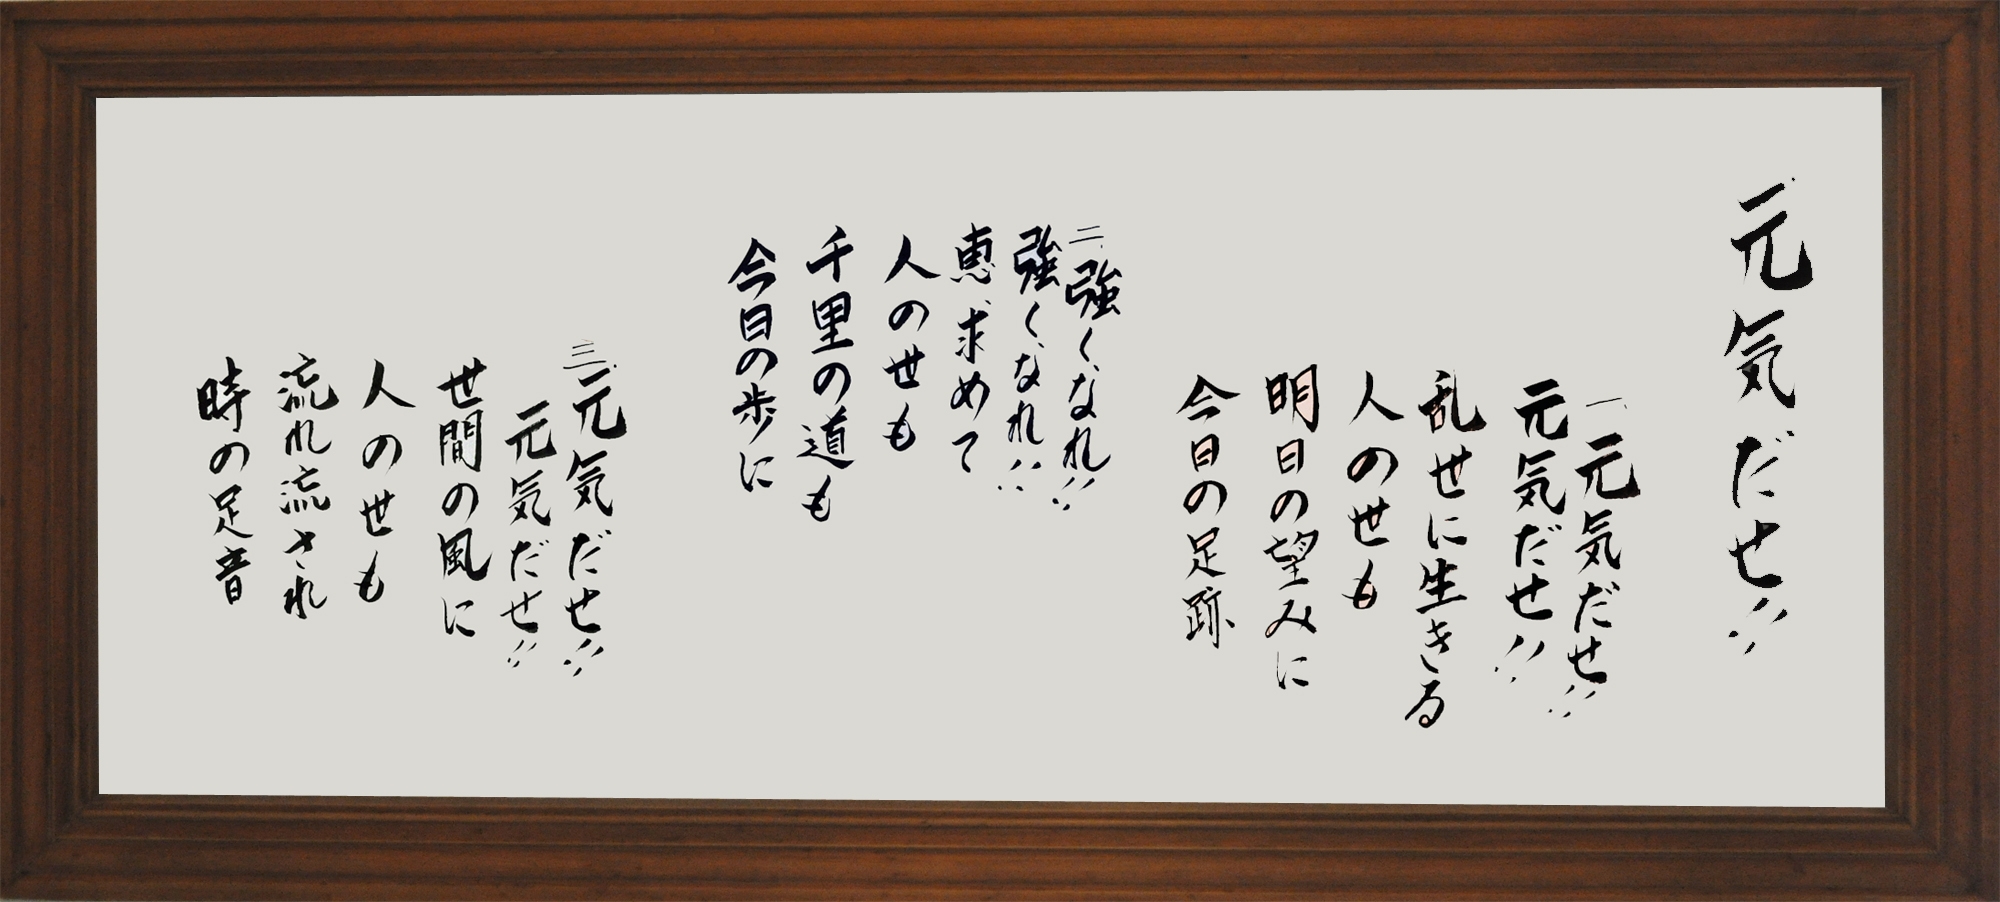 元気だせ!!
一、元気だせ!!
元気だせ!!
乱世に生きる
人の世も
明日の望みに
今日の足跡
二、強くなれ!!
強くなれ!!
恵求めて
人の世も
千里の道も
今日の歩に
三、元気だせ!!
元気だせ!!
世間の風に
人の世も
流れ流され
時の足音